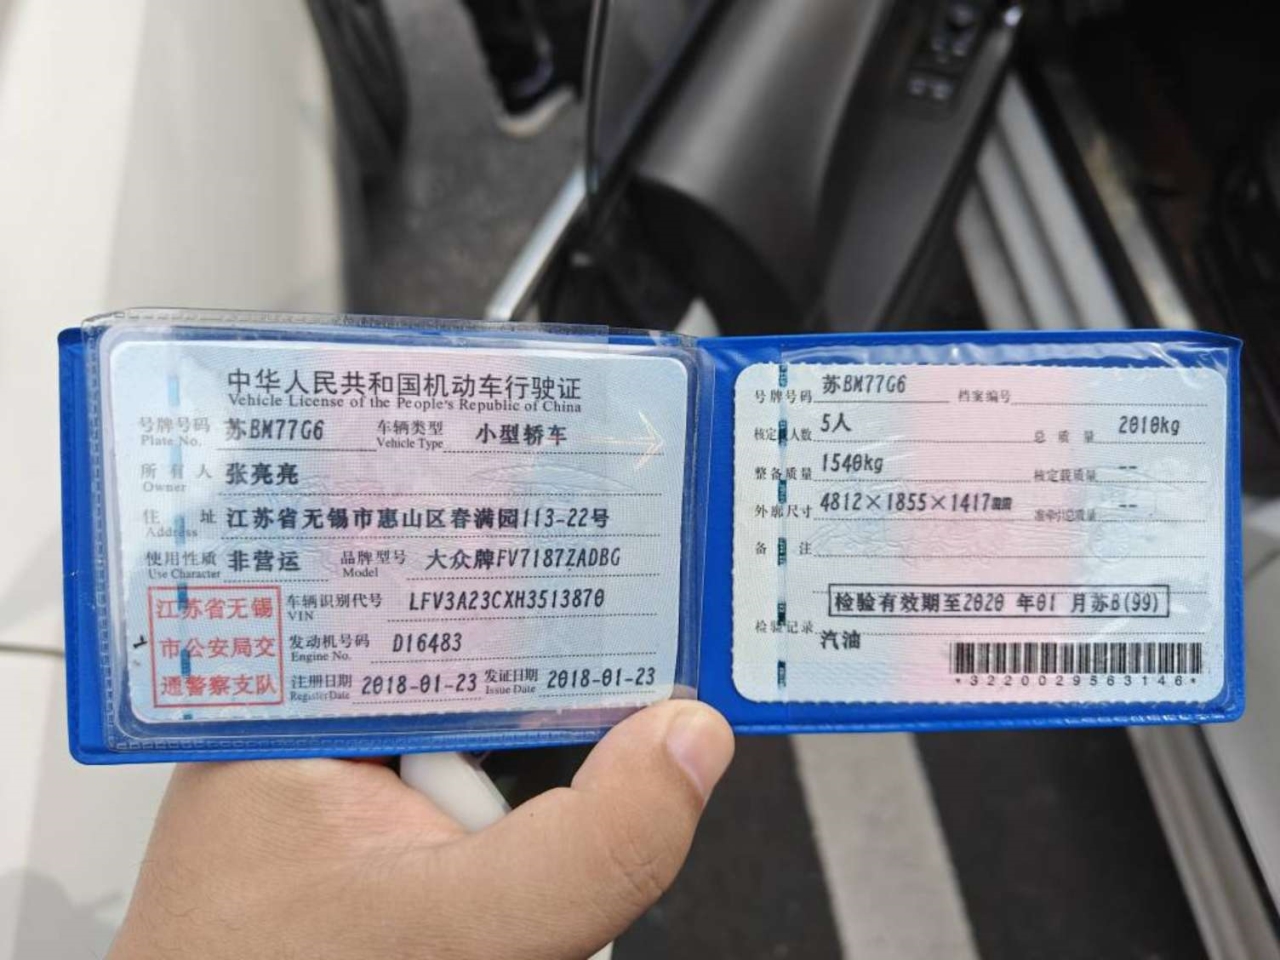 中华人民共和国机动车行驶证
Vehicle License of the People's Republic of China
号牌号码 苏BM77G6 车辆类型 小型轿车
Plate No. Vehicle Type
所有人 张亮亮
Owner
住址 江苏省无锡市惠山区春满园113-22号
Address
使用性质 非营运 品牌型号 大众牌FV7187ZADBG
Use Character Model
江苏省无锡
市公安局交
通警察支队
车辆识别代号 LFV3A23CXH3513870
VIN
发动机号码 D16483
Engine No.
注册日期 2018-01-23 发证日期 2018-01-23
Register Date Issue Date
号牌号码 苏BM77G6 档案编号
核定人数 5人 总质量 2010kg
整备质量 1540kg 核定载质量 --
外廓尺寸 4812×1855×1417mm 准牵引总质量 --
备注
检验有效期至2020 年01 月苏B(99)
检验记录
汽油
*3220029563146*